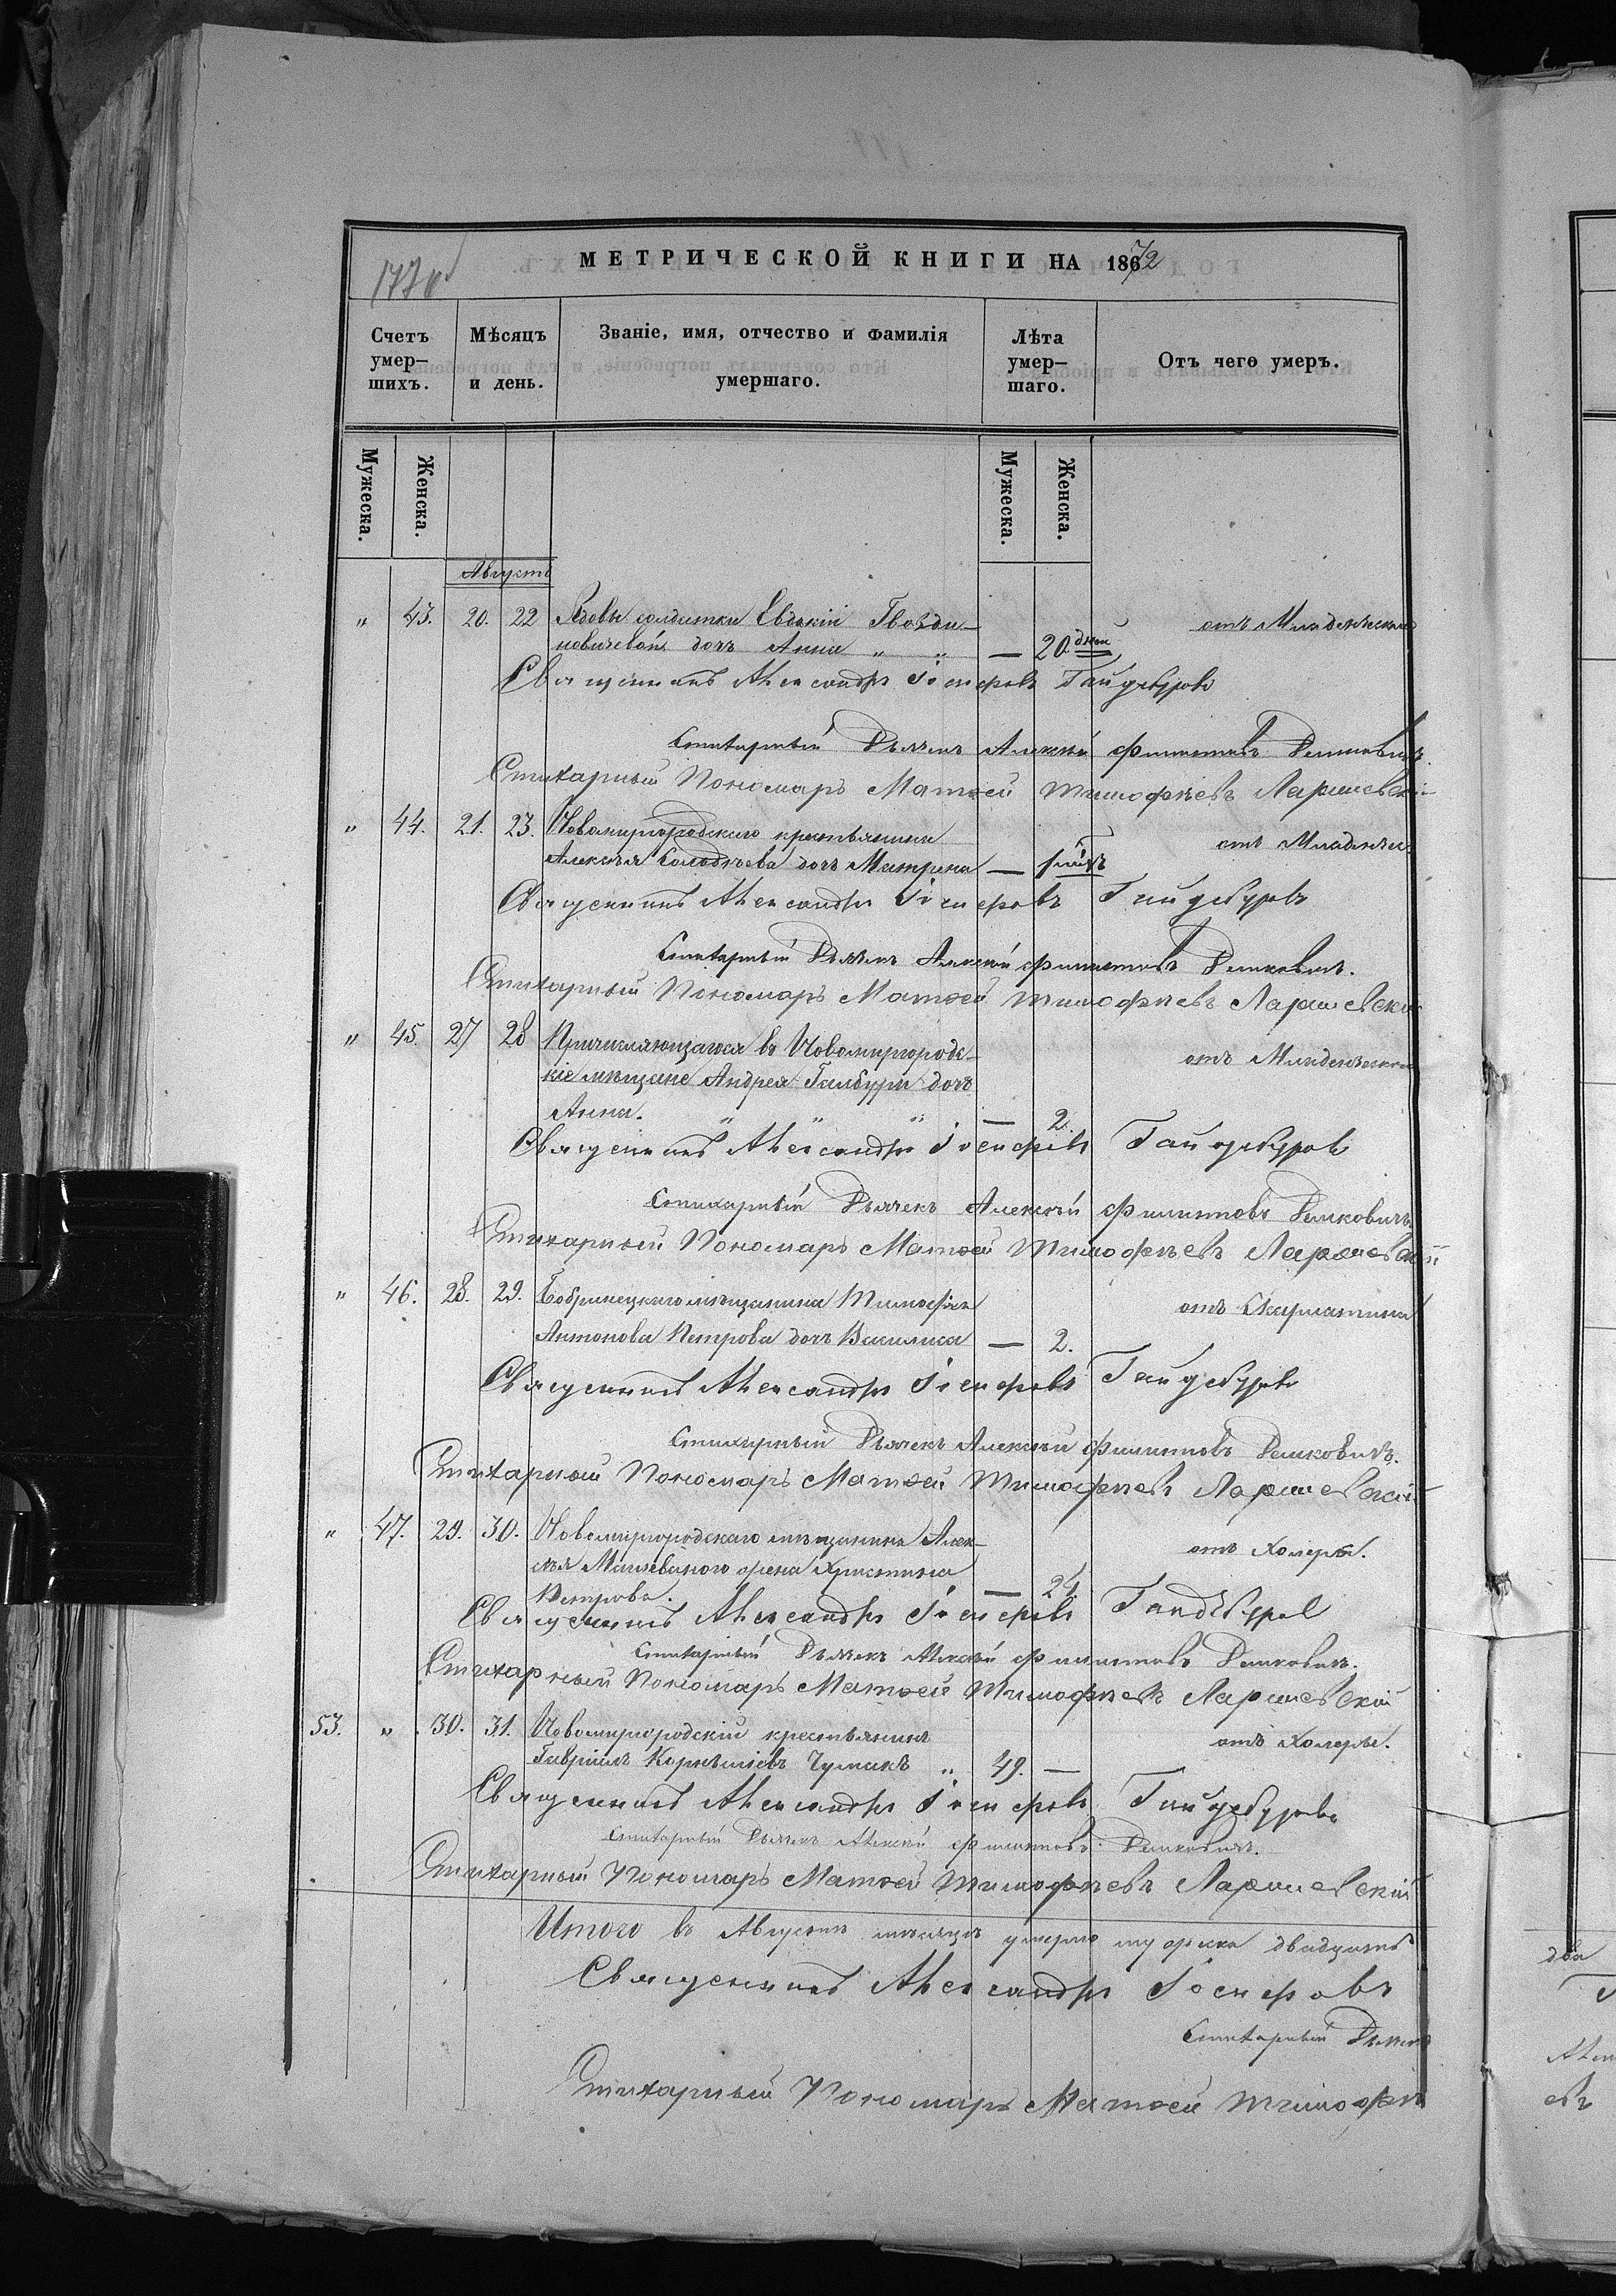 МЕТРИЧЕСКОЙ КНИГИ НА 1872
Счетъ умер-шихъ.
Мѣсяцъ и день.
Званіе, имя, отчество и фамилія умершаго.
Лѣта умер-шаго.
Отъ чего умеръ.
Мужеска.
Женска.
Мужеска.
Женска.
Августъ
" 43. 20. 22 Вдовы солдатки Евдокіи Гвозди-
новичевой дочь Анна " " — 20. дней
отъ Младенческой
Священникъ Александръ Іосифовъ Гайдебуровъ
Стихарный Дьячекъ Алексѣй Филиповъ
Стихарный Пономарь Матѳей Тимофѣевъ
" 44. 21. 23. Новомиргородскаго крестьянина
Алексѣя дочь Матрена —
отъ Младенчес
Священникъ Александръ Іосифовъ Гайдебуровъ
Стихарный Дьячекъ Алексѣй Филиповъ
Стихарный Пономарь Матѳей Тимофѣевъ
" 45. 27 28 Причисляющагося въ Новомиргород-
скіе мѣщане Андрея дочь
Анна. " " " — 2.
отъ Младенческой
Священникъ Александръ Іосифовъ Гайдебуровъ
Стихарный Дьячекъ Алексѣй Филиповъ
Стихарный Пономарь Матѳей Тимофѣевъ
" 46. 28. 29. Бобринецкаго мѣщанина Тимофѣя
Антонова Петрова дочь Василиса — 2.
отъ Скарлатины
Священникъ Александръ Іосифовъ Гайдебуровъ
Стихарный Дьячекъ Алексѣй Филиповъ
Стихарный Пономарь Матѳей Тимофѣевъ
" 47. 29. 30. Новомиргородскаго мѣщанина Алек-
сѣя жена Христина
Петрова. — 24.
отъ Холеры.
Священникъ Александръ Іосифовъ Гайдебуровъ
Стихарный Дьячекъ Алексѣй Филиповъ
Стихарный Пономарь Матѳей Тимофѣевъ
53. " 30. 31. Новомиргородскій крестьянинъ
Гавріилъ Корнѣліевъ Чумакъ " 49. —
отъ Холеры.
Священникъ Александръ Іосифовъ Гайдебуровъ
Стихарный Дьячекъ Алексѣй Филиповъ
Стихарный Пономарь Матѳей Тимофѣевъ
Итого въ Августѣ мѣсяцѣ умерло мужеска двадцать
Священникъ Александръ Іосифовъ
Стихарный Дьячекъ
Стихарный Пономарь Матѳей Тимофѣ
два
евъ